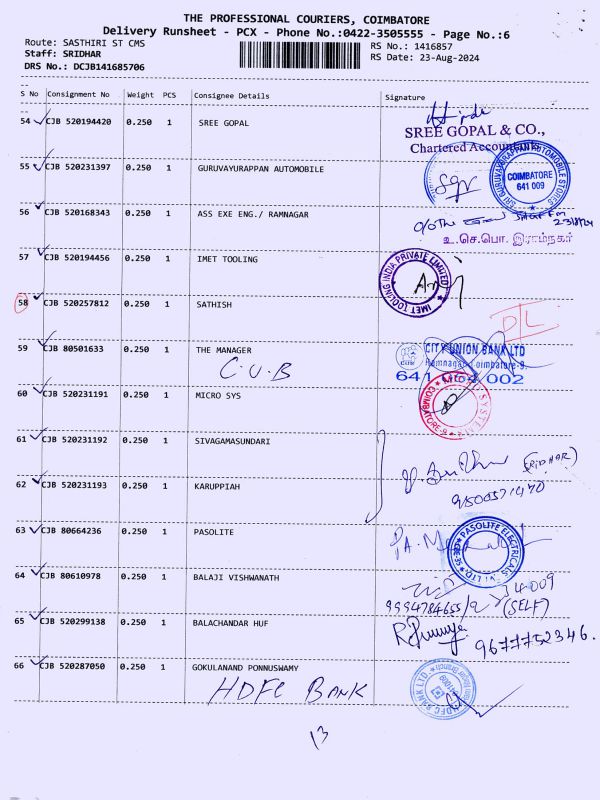 THE PROFESSIONAL COURIERS, COIMBATORE
Delivery Runsheet - PCX - Phone No.:0422-3505555 - Page No.:6
Route: SASTHIRI ST CMS
RS No.: 1416857
Staff: SRIDHAR
RS Date: 23-Aug-2024
DRS No.: DCJB141685706
S No Consignment No Weight PCS Consignee Details Signature
54 CJB 520194420 0.250 1 SREE GOPAL
SREE GOPAL & CO.,
Chartered Accountants
55 CJB 520231397 0.250 1 GURUVAYURAPPAN AUTOMOBILE
SRI GURUVAYURAPPAN AUTOMOBILE STORES
COIMBATORE
641 009
56 CJB 520168343 0.250 1 ASS EXE ENG./ RAMNAGAR
உ.செ.பொ. இராம்நகர்
57 CJB 520194456 0.250 1 IMET TOOLING
IMET TOOLING INDIA PRIVATE LIMITED
58 CJB 520257812 0.250 1 SATHISH
D/L
59 CJB 80501633 0.250 1 THE MANAGER
C.U.B
CITY UNION BANK LTD
Ramnagar Coimbatore-9.
60 CJB 520231191 0.250 1 MICRO SYS
COIMBATORE-9
61 CJB 520231192 0.250 1 SIVAGAMASUNDARI
(SRIDHAR)
62 CJB 520231193 0.250 1 KARUPPIAH
63 CJB 80664236 0.250 1 PASOLITE
PASOLITE ELECTRICALS
64 CJB 80610978 0.250 1 BALAJI VISHWANATH
9994784655/9
(SELF)
65 CJB 520299138 0.250 1 BALACHANDAR HUF
9677752346.
66 CJB 520287050 0.250 1 GOKULANAND PONNUSWAMY
HDFC BANK
HDFC BANK LTD
13